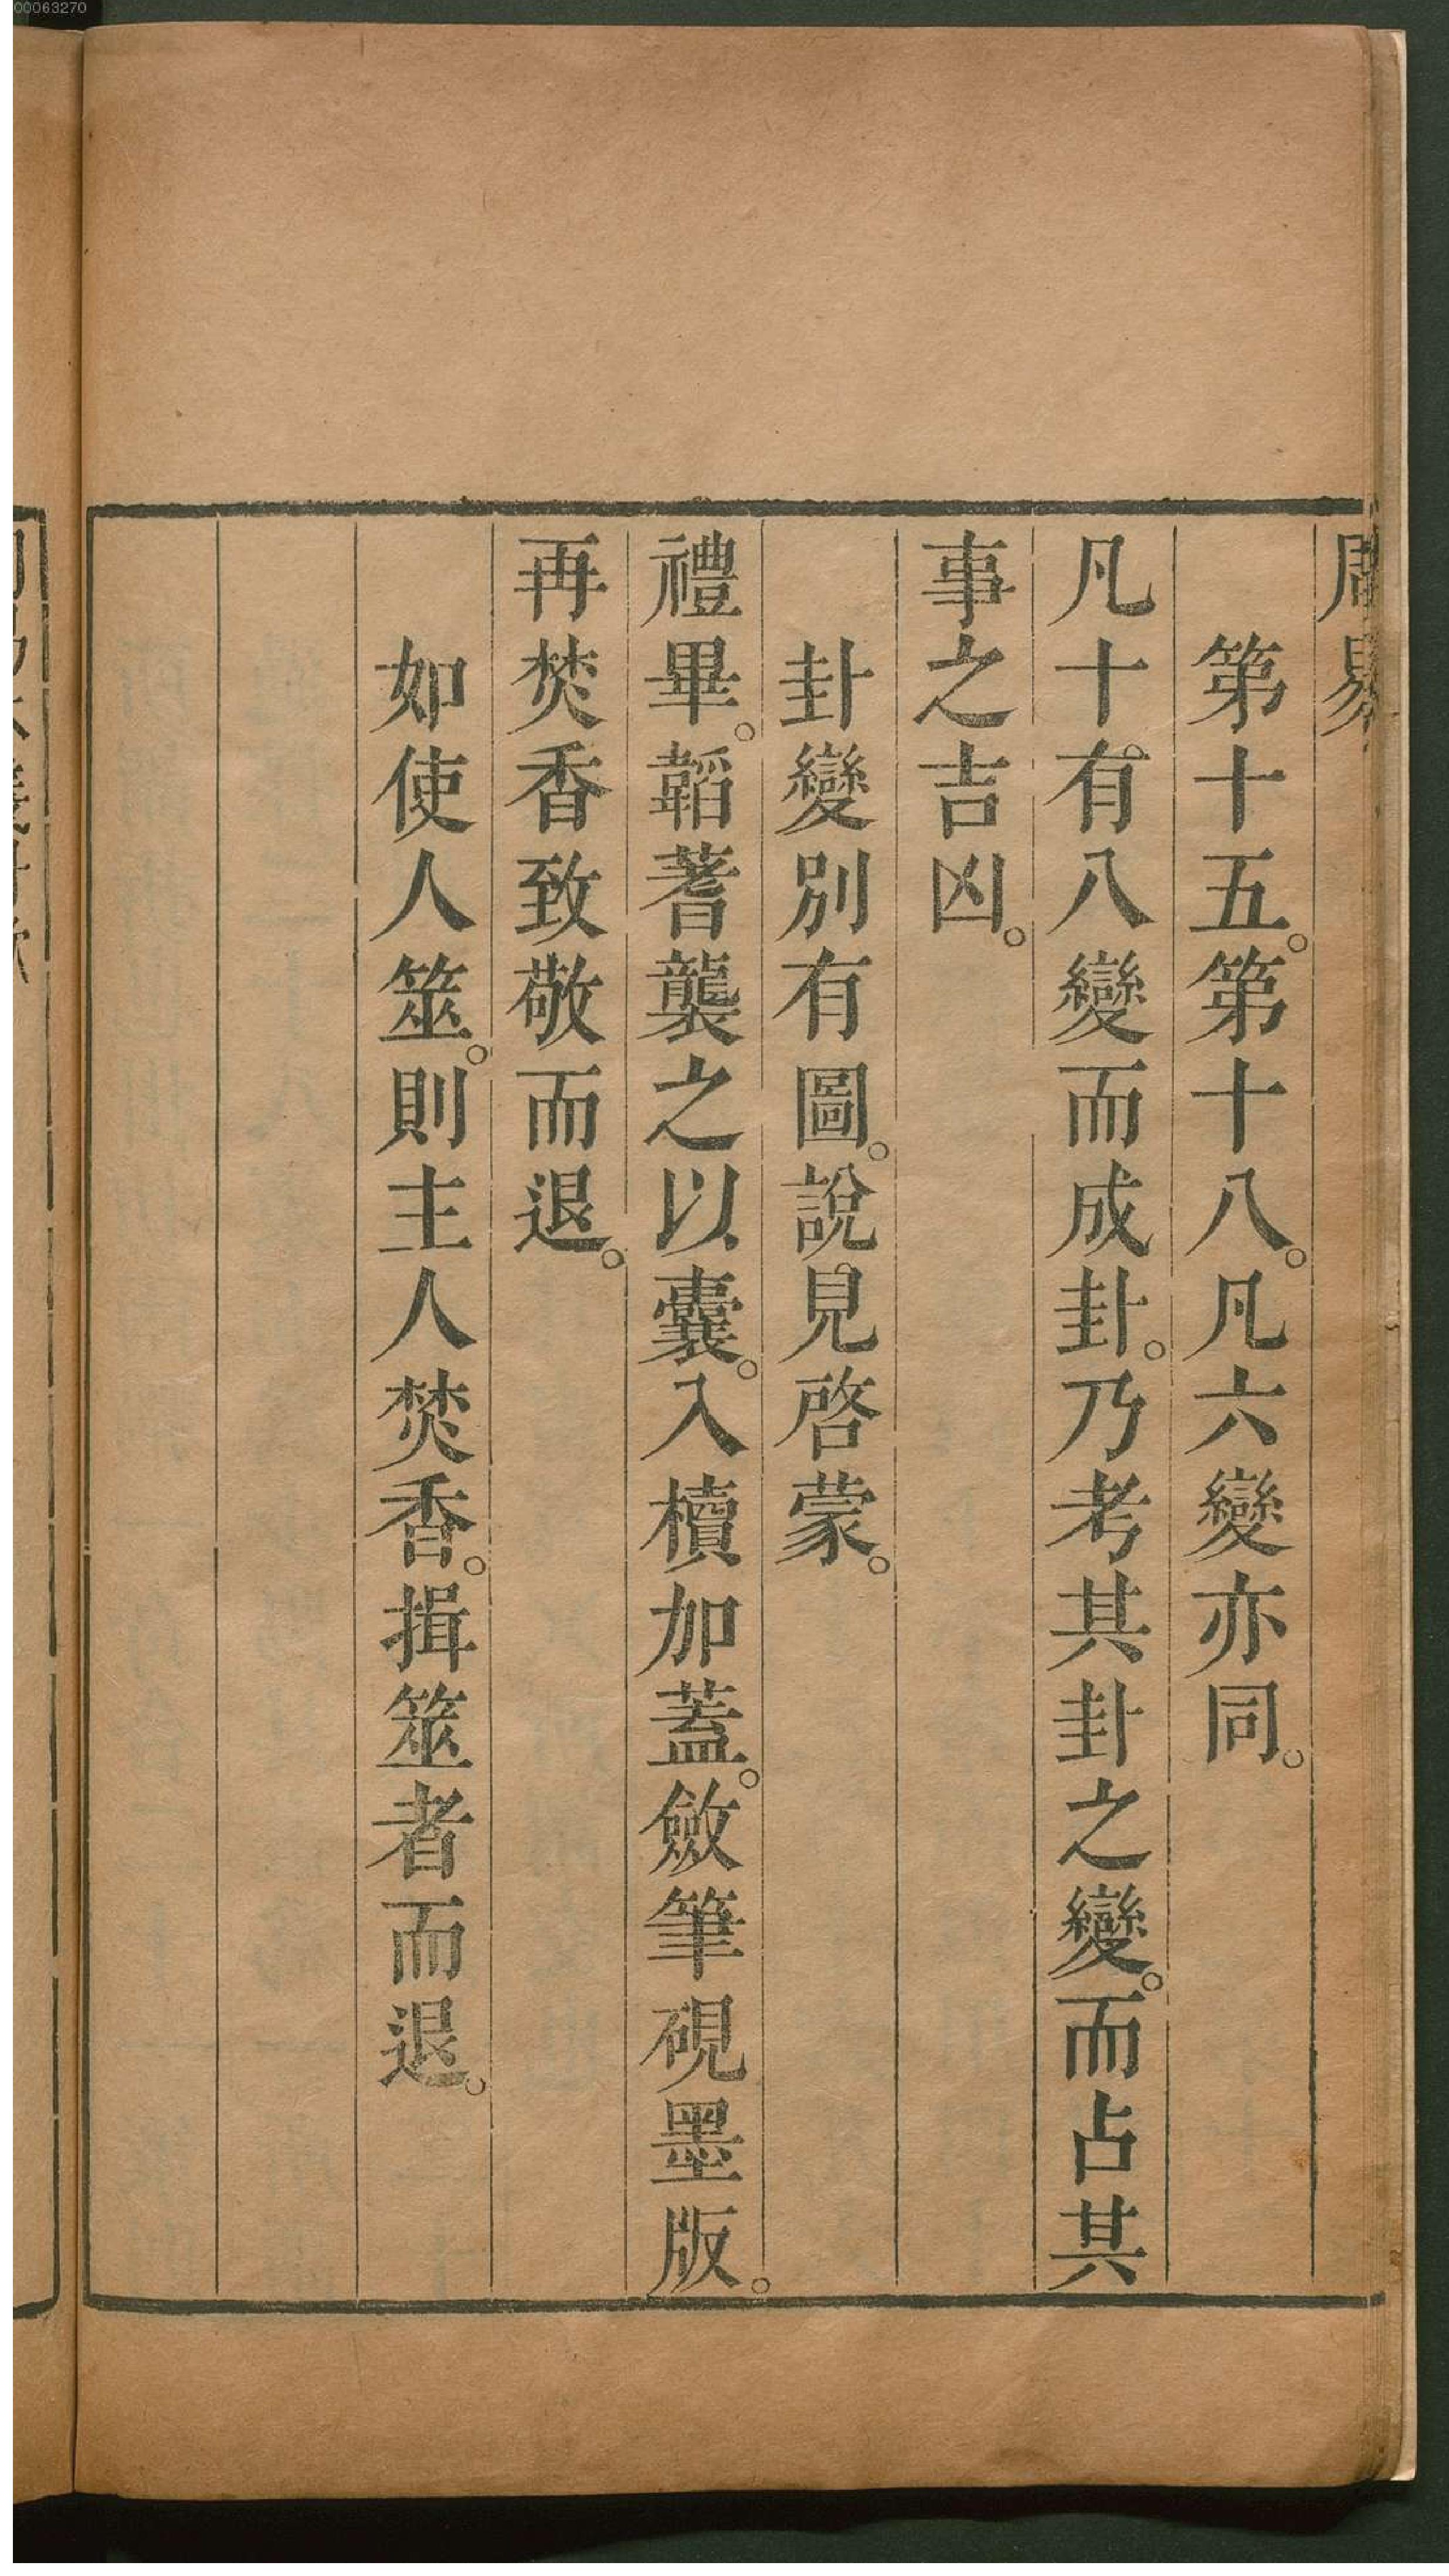 00063270
周易
第十五。第十八。凡六變亦同。
凡十有八變而成卦。乃考其卦之變。而占其
事之吉凶。
卦變別有圖。說見啓蒙。
禮畢。韜蓍襲之以囊。入櫝加蓋。斂筆硯墨版。
再焚香致敬而退。
如使人筮。則主人焚香。揖筮者而退。